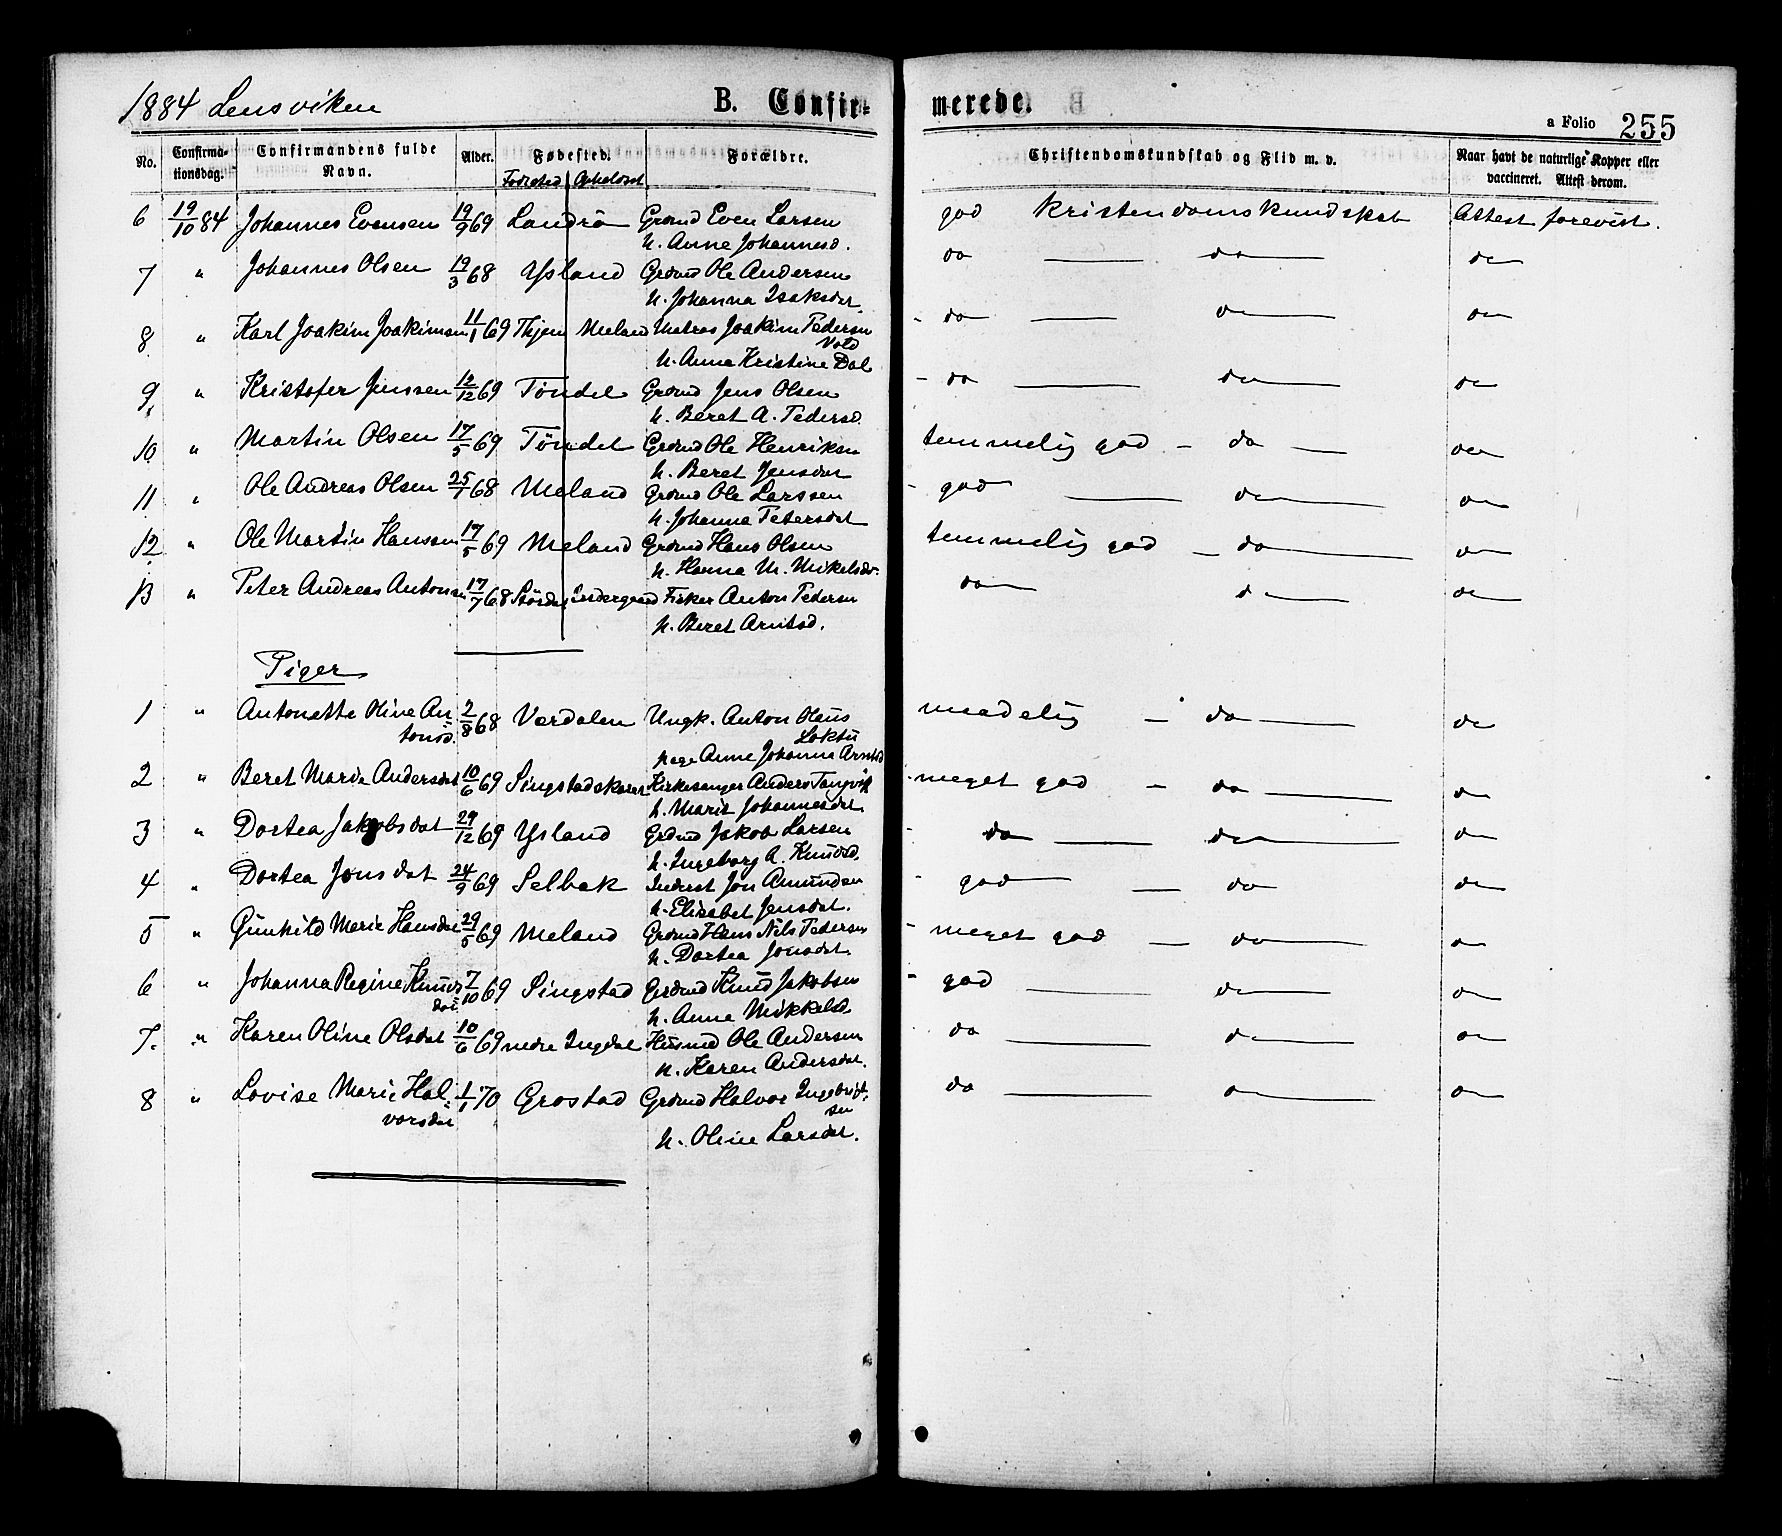 1884 Lensviken B. Confir- merede. a Folio 255
No. Confirma-tionsdag. Confirmandens fulde Navn. Alder. Fødested. Forældre. Christendomskundskab og Flid m. v. Naar havt de naturlige Kopper eller vaccineret. Attest derom.
Fødested Opholdsst.
6 19/10 84 Johannes Evensen 19/9 69 Landrö Grdmd Even Larsen god Kristendomskundskab Attest forevist.
h. Anne Johannesd.
7 " Johannes Olsen 19/3 68 Ysland Grdmd Ole Andersen do — do — do
h. Johanna Isaksdat.
8 " Karl Joakim Joakimsen 11/1 69 Thjem Meland Matros Joakim Pedersen - do — do — do
Vold
h. Anna Kristine Dal
9. " Kristofer Jenssen 12/12 69 Töndel Grdmd Jens Olsen - do — do — do
h. Beret A. Pedersd.
10 " Martin Olsen 17/5 69 Töndel Grdmd Ole Henriksen temmelig god - do — do
h. Beret Jensdat
11 " Ole Andreas Olsen 25/1 68 Meland Grdmd Ole Larssen - god — do — do
h. Johanna Petersdat
12 " Ole Martin Hansen 17/5 69 Meland Grdmd Hans Olsen temmelig god - do — do
h. Hanna M. Mikelsdr.
13 " Peter Andreas Antonsen 17/7 68 Störda Indergaard Fisker Anton Pedersen do — do — do
h. Beret Arntsd.
Piger
1 " Antonette Oline An- 2/8 68 Værdalen Ungk. Anton Olaus maadelig - do — do
tonsd. Loktu
pige Anne Johanna Arntsd
2 " Beret Maria Andersdat 10/6 69 Singstadskaret Kirkesanger Anders Tangvik - meget god - do — do
h. Marit Johannesdat.
3 " Dortea Jakobsdat 29/12 69 Ysland Grdmd Jakob Larsen - do — do — do
h. Ingeborg A. Knudsd.
4 " Dortea Jonsdat 24/9 69 Selbak Inderst Jon Amundsen - god — do — do
h. Elisabet Jensdat.
5 " Gunhild Marie Hansdat 29/5 69 Meland Grdmd Hans Nils Pedersen - meget god — do — do
h. Dortea Jonsdat
6 " Johanna Regine Knuds- 7/10 69 Singstad Grdmd Knud Jakobsen - god — do — do
dat h. Anne Mikkelsd
7. " Karen Oline Olsdat 10/6 69 nedre Ingdal Husmd Ole Andersen do — do — do
h. Karen Andersdat.
8 " Lovise Marie Hal- 1/1 70 Grostad Grdmd Halvor Ingebrigt- do — do — do
vorsdat sen
h. Oline Larsdat.